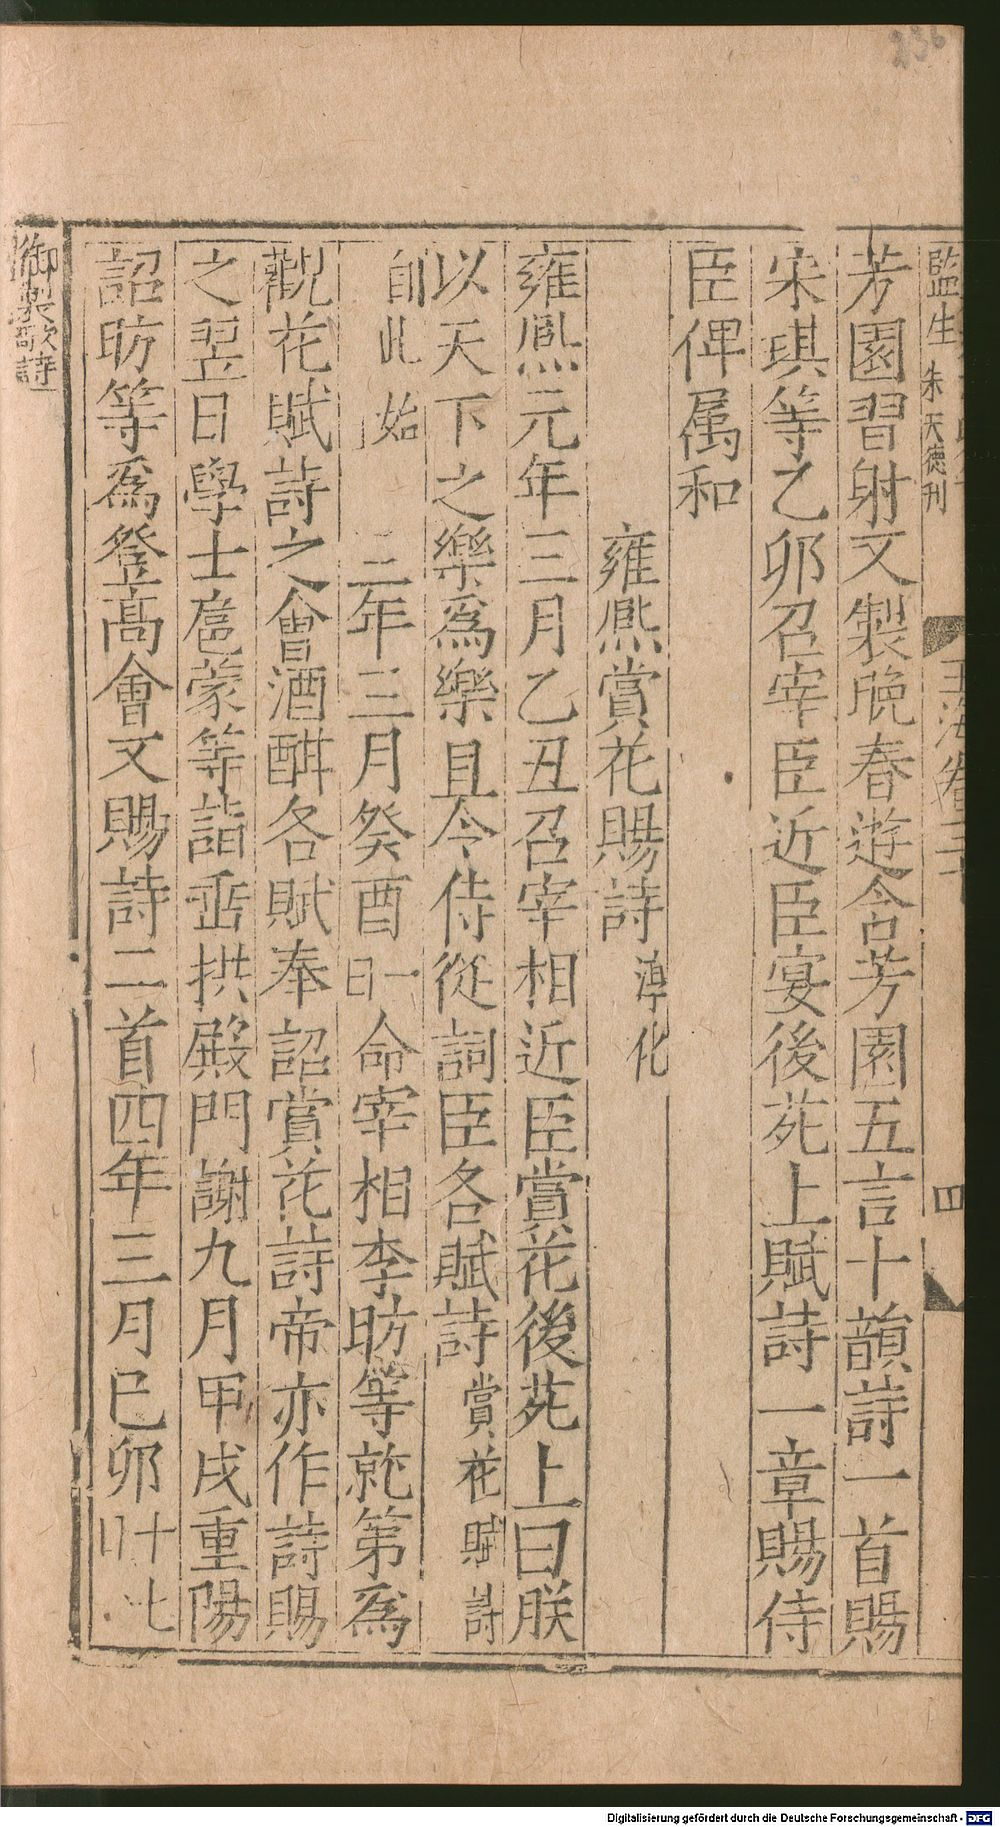 236
監生 朱天德刊
玉海卷三十
四
芳園習射又製晚春遊含芳園五言十韻詩一首賜
宋琪等乙卯召宰臣近臣宴後苑上賦詩一章賜侍
臣俾属和
雍熙賞花賜詩 淳化
雍熙元年三月乙丑召宰相近臣賞花後苑上曰朕
以天下之樂爲樂且令侍從詞臣各賦詩 賞花賦詩
自此始 二年三月癸酉 一日 命宰相李昉等就第爲
觀花賦詩之會酒酣各賦奉詔賞花詩帝亦作詩賜
之翌日學士扈蒙等詣垂拱殿門謝九月甲戌重陽
詔昉等爲登高會又賜詩二首四年三月已卯 十七日
御製歌詩
Digitalisierung gefördert durch die Deutsche Forschungsgemeinschaft - DFG